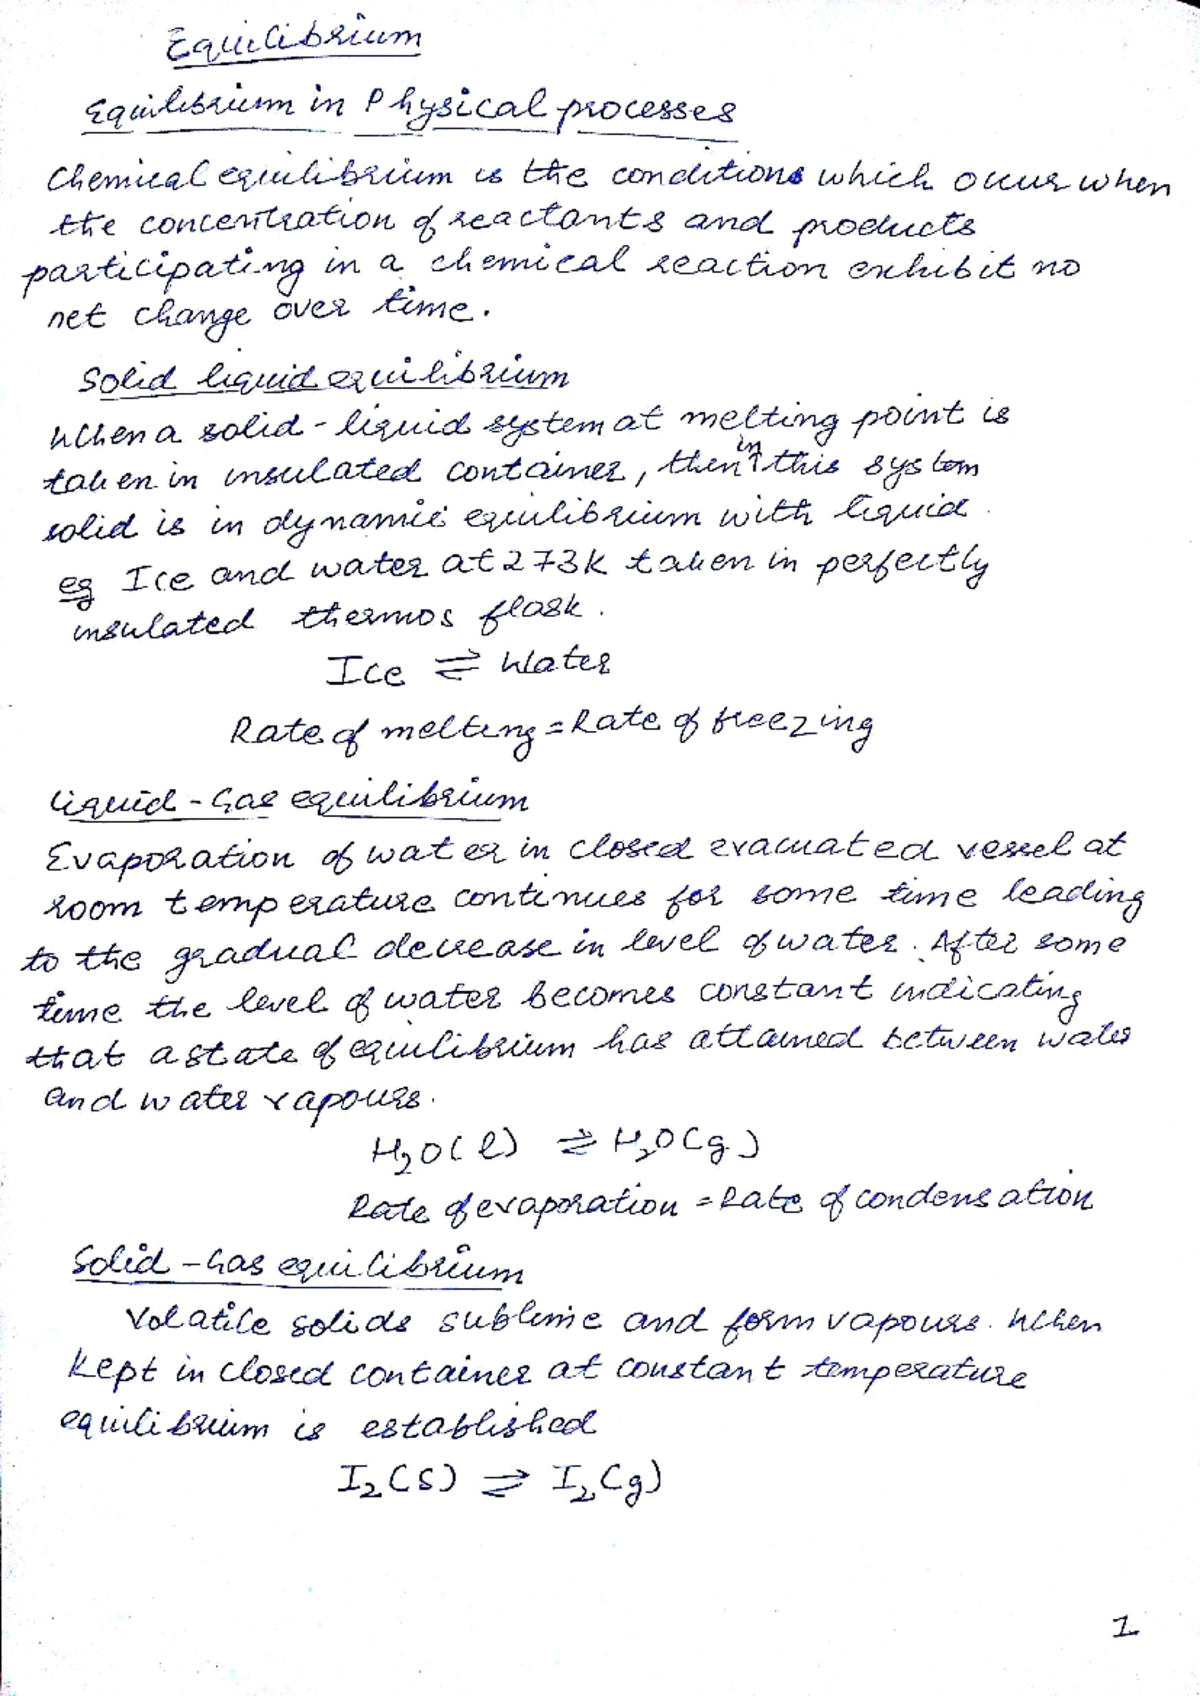 Equilibrium
Equilibrium in Physical processes
Chemical equilibrium is the conditions which occur when
the concentration of reactants and products
participating in a chemical reaction exhibit no
net change over time.
Solid liquid equilibrium
When a solid - liquid system at melting point is
taken in insulated container, then in this system
solid is in dynamic equilibrium with liquid.
eg Ice and water at 273K taken in perfectly
insulated thermos flask.
Ice ⇌ Water
Rate of melting = Rate of freezing
Liquid - Gas equilibrium
Evaporation of water in closed evacuated vessel at
room temperature continues for some time leading
to the gradual decrease in level of water. After some
time the level of water becomes constant indicating
that a state of equilibrium has attained between water
and water vapours.
H₂O(l) ⇌ H₂O(g)
Rate of evaporation = Rate of condensation
Solid - Gas equilibrium
Volatile solids sublime and form vapours. When
kept in closed container at constant temperature
equilibrium is established
I₂(s) ⇌ I₂(g)
1